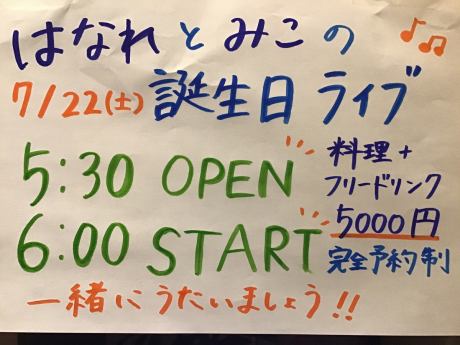 はなれとみこの
7/22(土) 誕生日 ライブ
5:30 OPEN
6:00 START
料理+
フリードリンク
5000円
完全予約制
一緒にうたいましょう!!